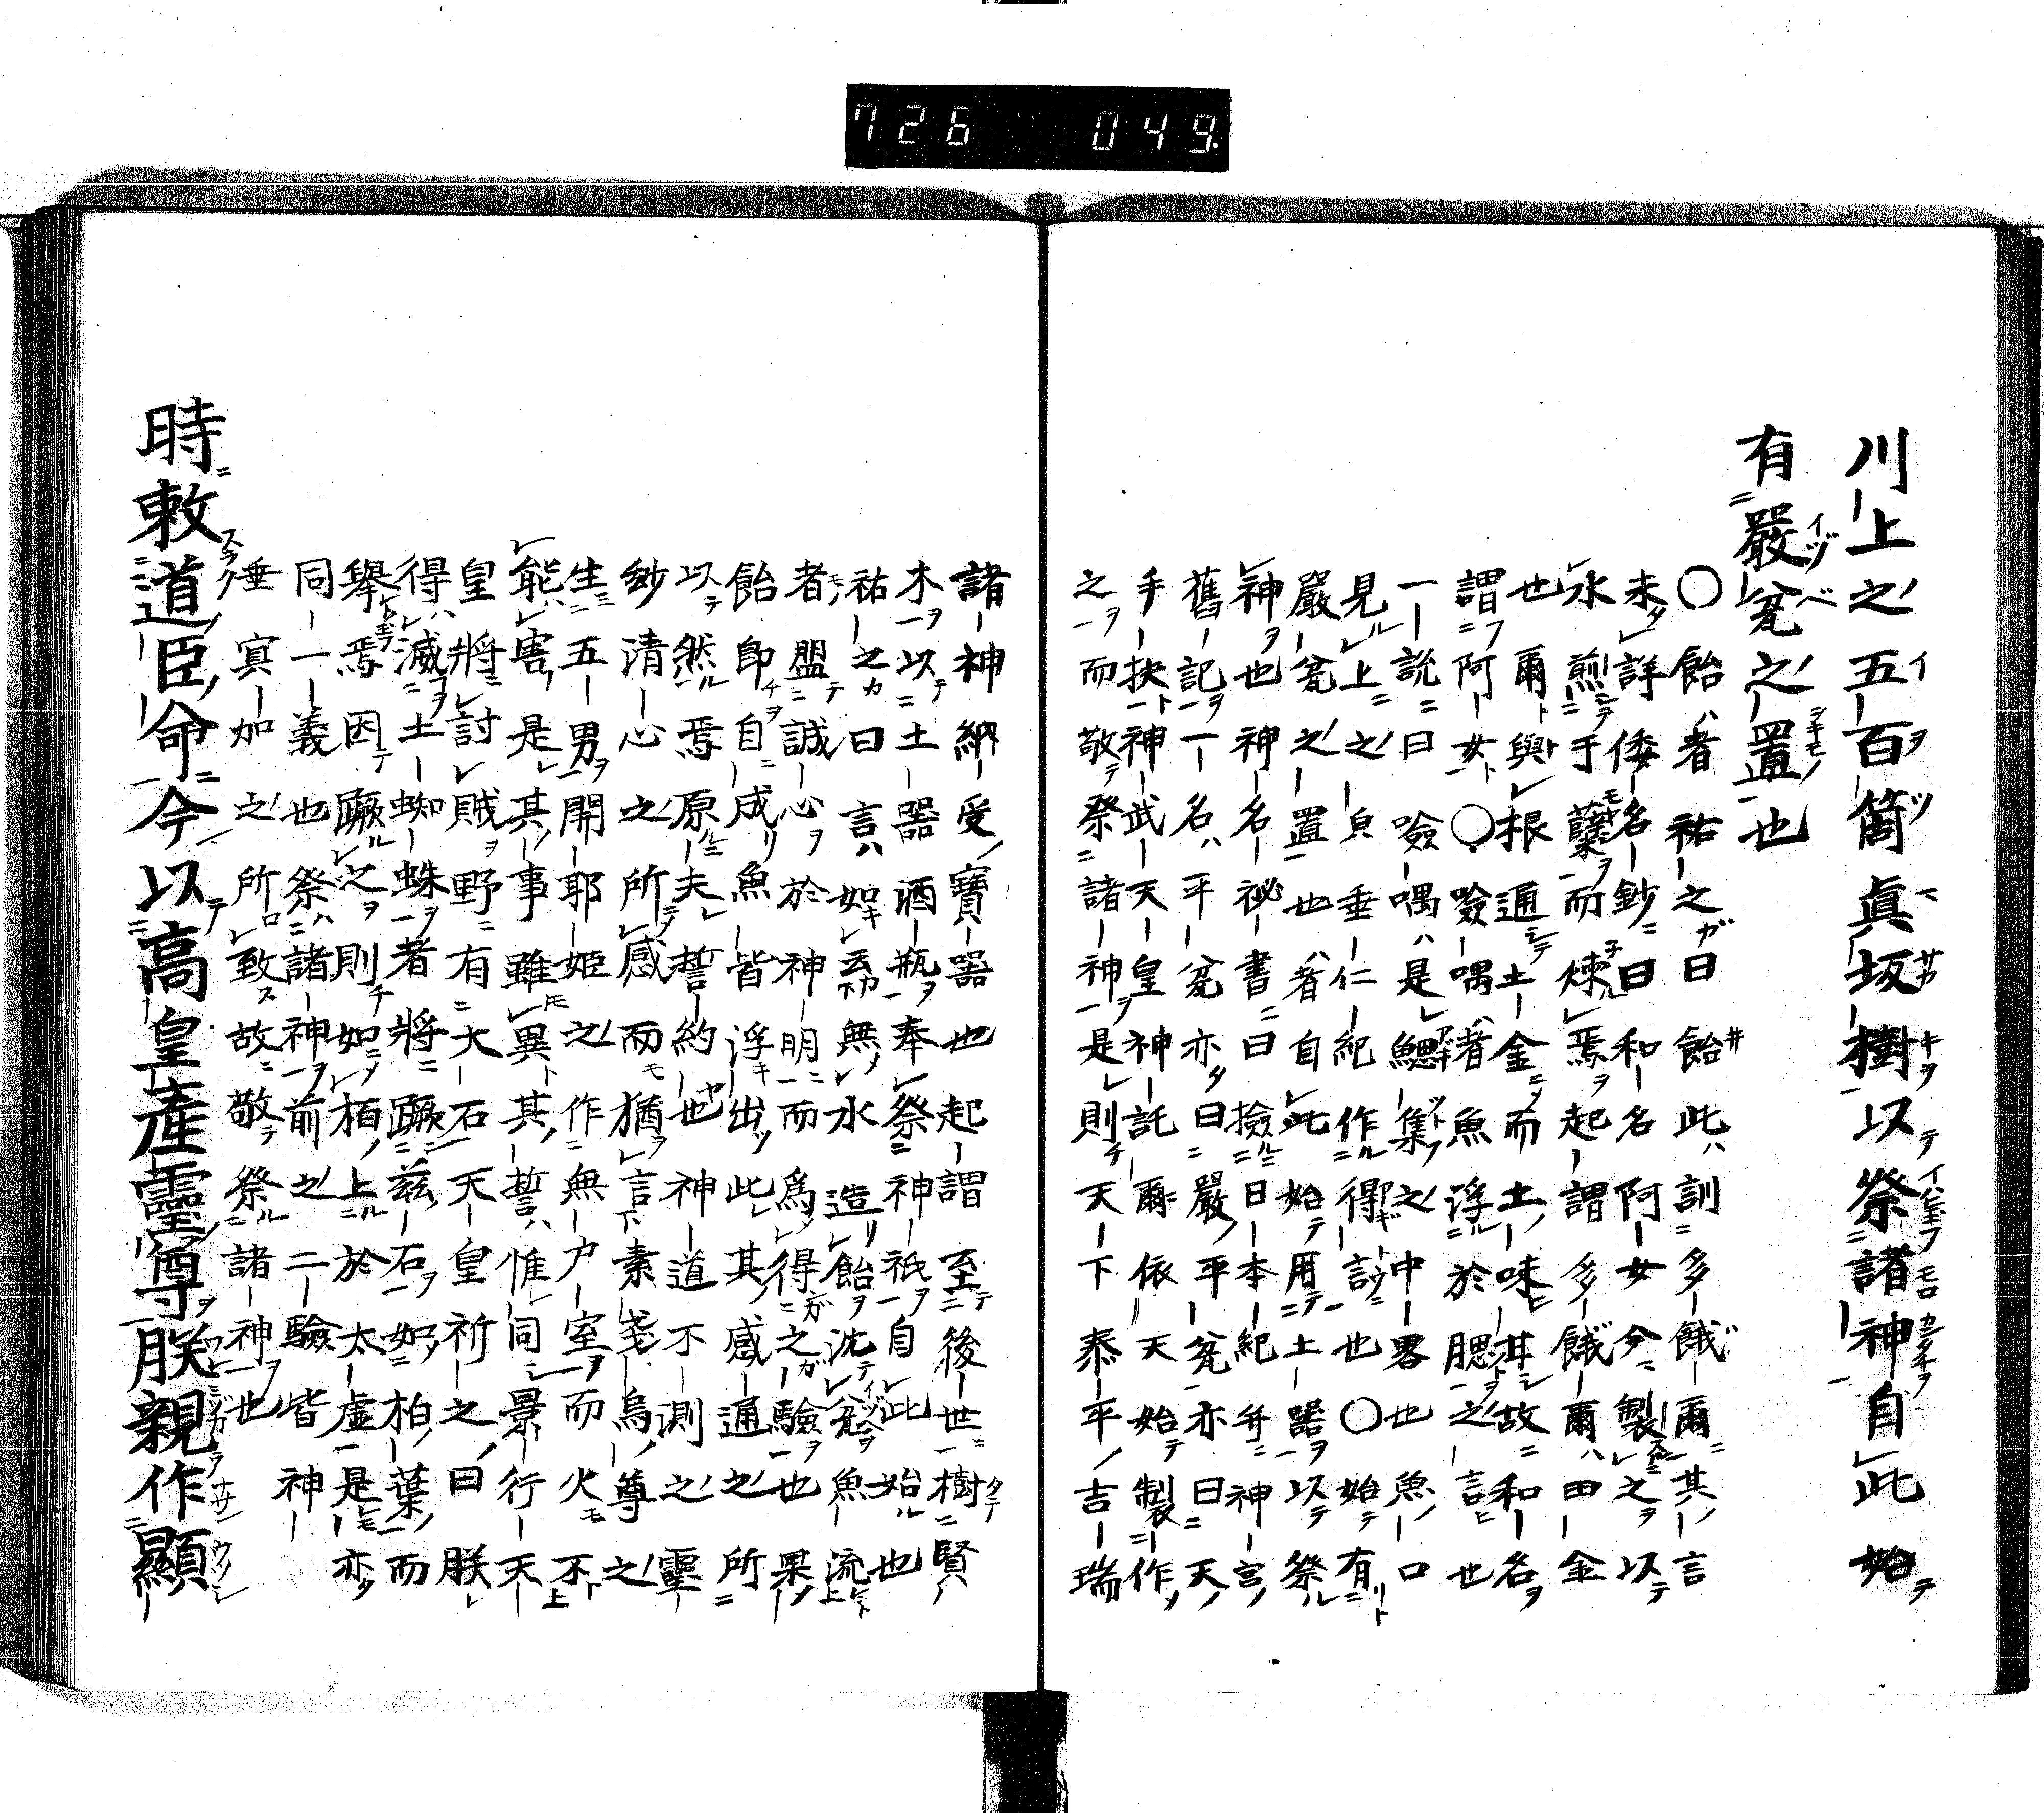 726 049
川上之五百箇眞坂樹以祭諸神自此始
有嚴瓮之置也
〇飴者祐之曰飴此訓多餓爾其言
未詳倭名鈔曰和名阿女今製之以
水煎于糵而煉焉起謂多餓爾田金
也爾與根通土金而土味甘故和名
謂阿女〇噞喁者魚浮於腮之言也
一說曰噞喁是鰓集之中畧也魚口
見上之貞垂仁紀作得訡也〇始有
嚴瓮之置也者自此始用土器以祭
神也神名祕書曰撿日本紀并神宮
舊記一名平瓮亦曰嚴平瓮亦曰天
手抉神武天皇神託爾依天始製作
之而敬祭諸神是則天下泰平吉瑞
諸神納受寶器也起謂至後世樹賢
木以土器酒瓶奉祭神祇自此始也
祐之曰言如云無水造飴沈瓮魚流
者盟誠心於神明而爲得之驗也果
飴卽自成魚皆浮出此其感通之所
以然焉原夫誓約也神道不測之靈
紗清心之所感而猶言素戔烏尊之
生五男開耶姬之作無戶室而火不
能害是其事雖異其誓惟同景行天
皇將討賊野有大石天皇祈之曰朕
得滅土蜘蛛者將蹶茲石如柏葉而
擧焉因蹶之則如柏上於太虛是亦
同一義也祭諸神前之二驗皆神
垂冥加之所致故敬祭諸神也
時敕道臣命今以高皇產靈尊朕親作顯